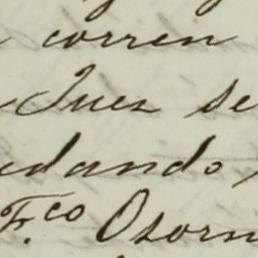 corren
Juez se
dando
F.co Osorn